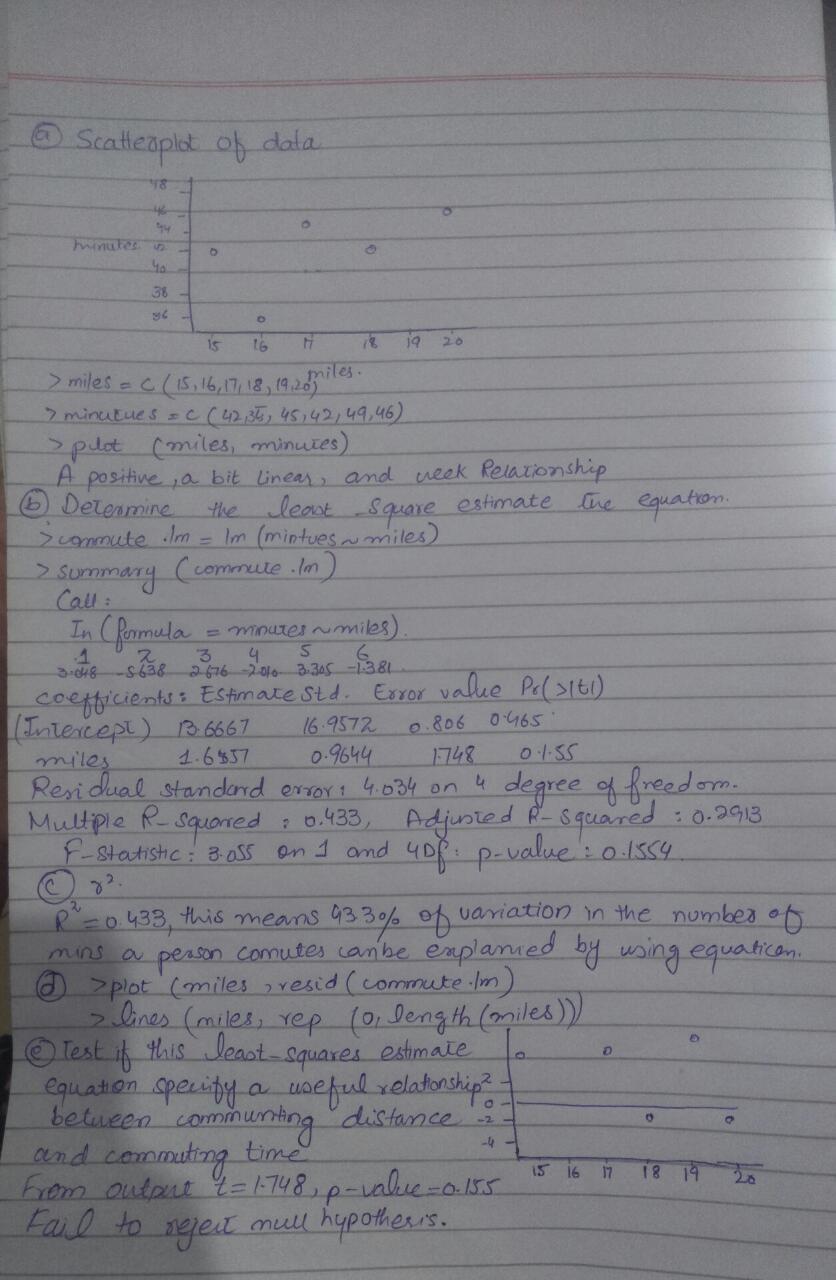 (a) Scatterplot of data
48
46
44
minutes 42
40
38
36
15 16 17 18 19 20
miles.
> miles = c (15,16,17,18,19,20)
> minutues = c (42,35, 45,42,49,46)
> plot (miles, minutes)
A positive, a bit linear, and week Relationship
(b) Determine the least square estimate the equation.
> commute.lm = lm (mintues ~ miles)
> summary (commute.lm)
Call:
In (formula = minutes ~ miles).
1 2 3 4 5 6
3.048 -5.638 2.676 -2.010 3.305 -1.381
coefficients: Estimate Std. Error value Pr(>|t|)
(Intercept) 13.6667 16.9572 0.806 0.465
miles 1.6857 0.9644 1.748 0.155
Residual standard error: 4.034 on 4 degree of freedom.
Multiple R-squared: 0.433, Adjusted R-squared: 0.2913
F-statistic: 3.055 on 1 and 4Df: p-value: 0.1554
(c) r².
R² = 0.433, this means 43.3% of variation in the number of
mins a person comutes canbe explanied by using equation.
(d) >plot (miles, resid (commute.lm)
> lines (miles, rep (0, length (miles)))
(e) Test if this least-squares estimate
equation specify a useful relationship
between communting distance
and commuting time
From output t=1.748, p-value=0.155
Fail to reject null hypothesis.
2
0
-2
-4
15 16 17 18 19 20